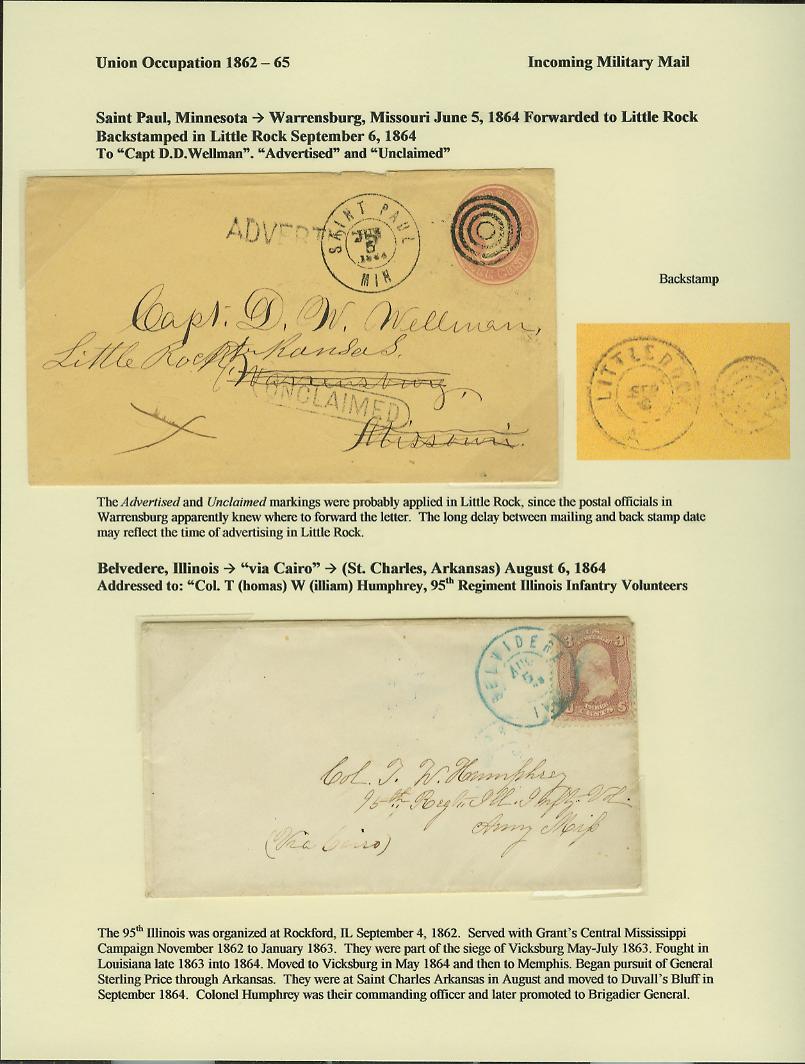 Union Occupation 1862 – 65
Incoming Military Mail
Saint Paul, Minnesota → Warrensburg, Missouri June 5, 1864 Forwarded to Little Rock
Backstamped in Little Rock September 6, 1864
To “Capt D.D.Wellman”. “Advertised” and “Unclaimed”
ADVERT
SAINT PAUL
5
MIN
Capt. D. W. Wellman,
Little Rock Arkansas.
Warrensburg,
UNCLAIMED
Missouri.
Backstamp
LITTLE ROCK
SEP
6
The Advertised and Unclaimed markings were probably applied in Little Rock, since the postal officials in
Warrensburg apparently knew where to forward the letter. The long delay between mailing and back stamp date
may reflect the time of advertising in Little Rock.
Belvedere, Illinois → “via Cairo” → (St. Charles, Arkansas) August 6, 1864
Addressed to: “Col. T (homas) W (illiam) Humphrey, 95th Regiment Illinois Infantry Volunteers
BELVIDERE
AUG
5
3 3
CENTS
Col. T. W. Humphrey
95th Regt. Ill. Infty. Vol.
Army Miss
(Via Cairo)
The 95th Illinois was organized at Rockford, IL September 4, 1862. Served with Grant’s Central Mississippi
Campaign November 1862 to January 1863. They were part of the siege of Vicksburg May-July 1863. Fought in
Louisiana late 1863 into 1864. Moved to Vicksburg in May 1864 and then to Memphis. Began pursuit of General
Sterling Price through Arkansas. They were at Saint Charles Arkansas in August and moved to Duvall’s Bluff in
September 1864. Colonel Humphrey was their commanding officer and later promoted to Brigadier General.